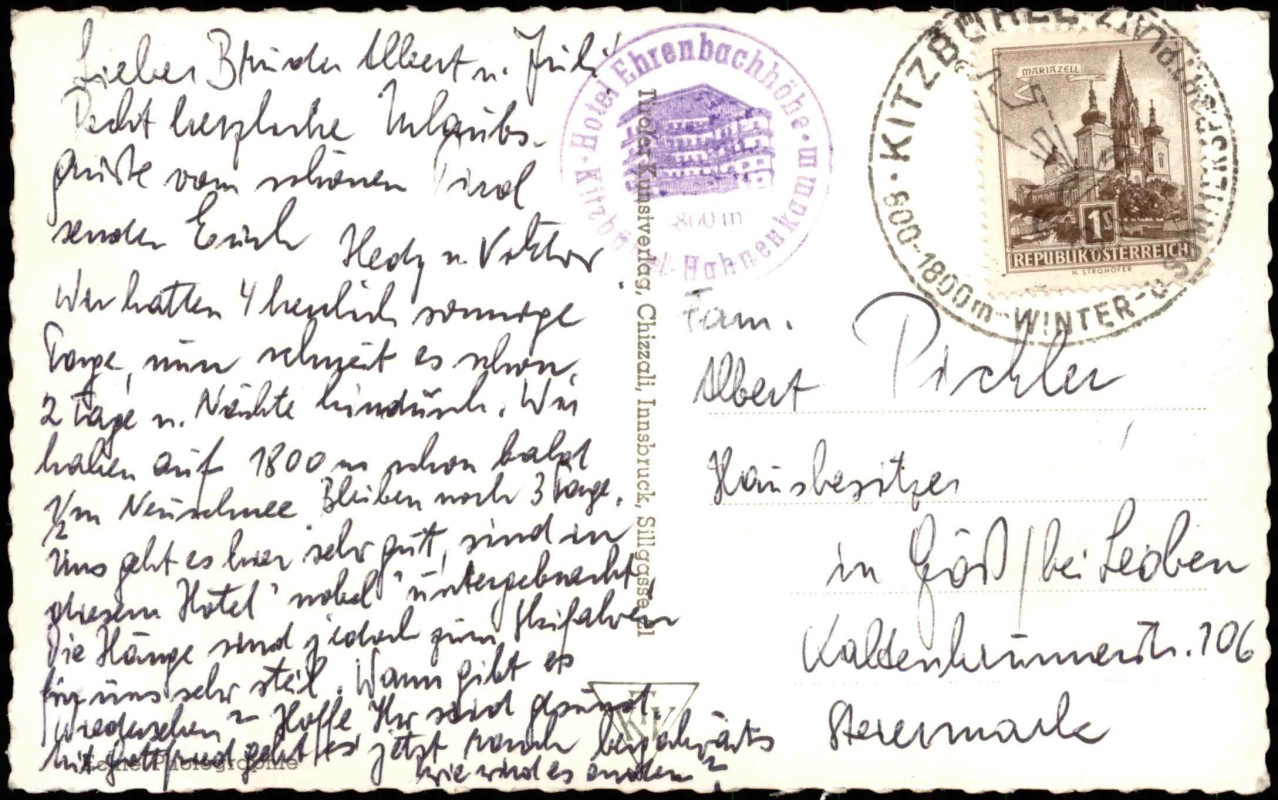 Lieber Bruder Albert u. Juli!
Recht herzliche Urlaubs-
grüße vom schönen Tirol
senden Erich Hedy u. Viktor
Wir hatten 4 herrlich sonnige
Tage, nun schneit es schon
2 Tage u. Nächte hindurch. Wir
haben auf 1800 m schon bald
1/2 m Neuschnee Bleiben noch 3 Tage.
Uns geht es hier sehr gut, sind in
diesem Hotel "nobel" untergebracht
Die Hänge sind jedoch zum Skifahren
für uns sehr steil. Wann gibt es
wiedersehen? Hoffe Ihr seid gesund.
Mit Gottfried geht es jetzt rasch bergabwärts
wie wird es enden?
Echte Photographie
Hotel Ehrenbachhöhe · Kitzbühel - Hahnenkamm
1800 m
Tiroler Kunstverlag, Chizzali, Innsbruck, Sillgasse 21
KITZBÜHEL
800-1800m - WINTER- u. SOMMER
MARIAZELL
1S
REPUBLIK ÖSTERREICH
H. STROHOFER
Fam.
Albert Pichler
Hausbesitzer
in Göß / bei Leoben
Kaltenbrunnerstr. 106
Steiermark